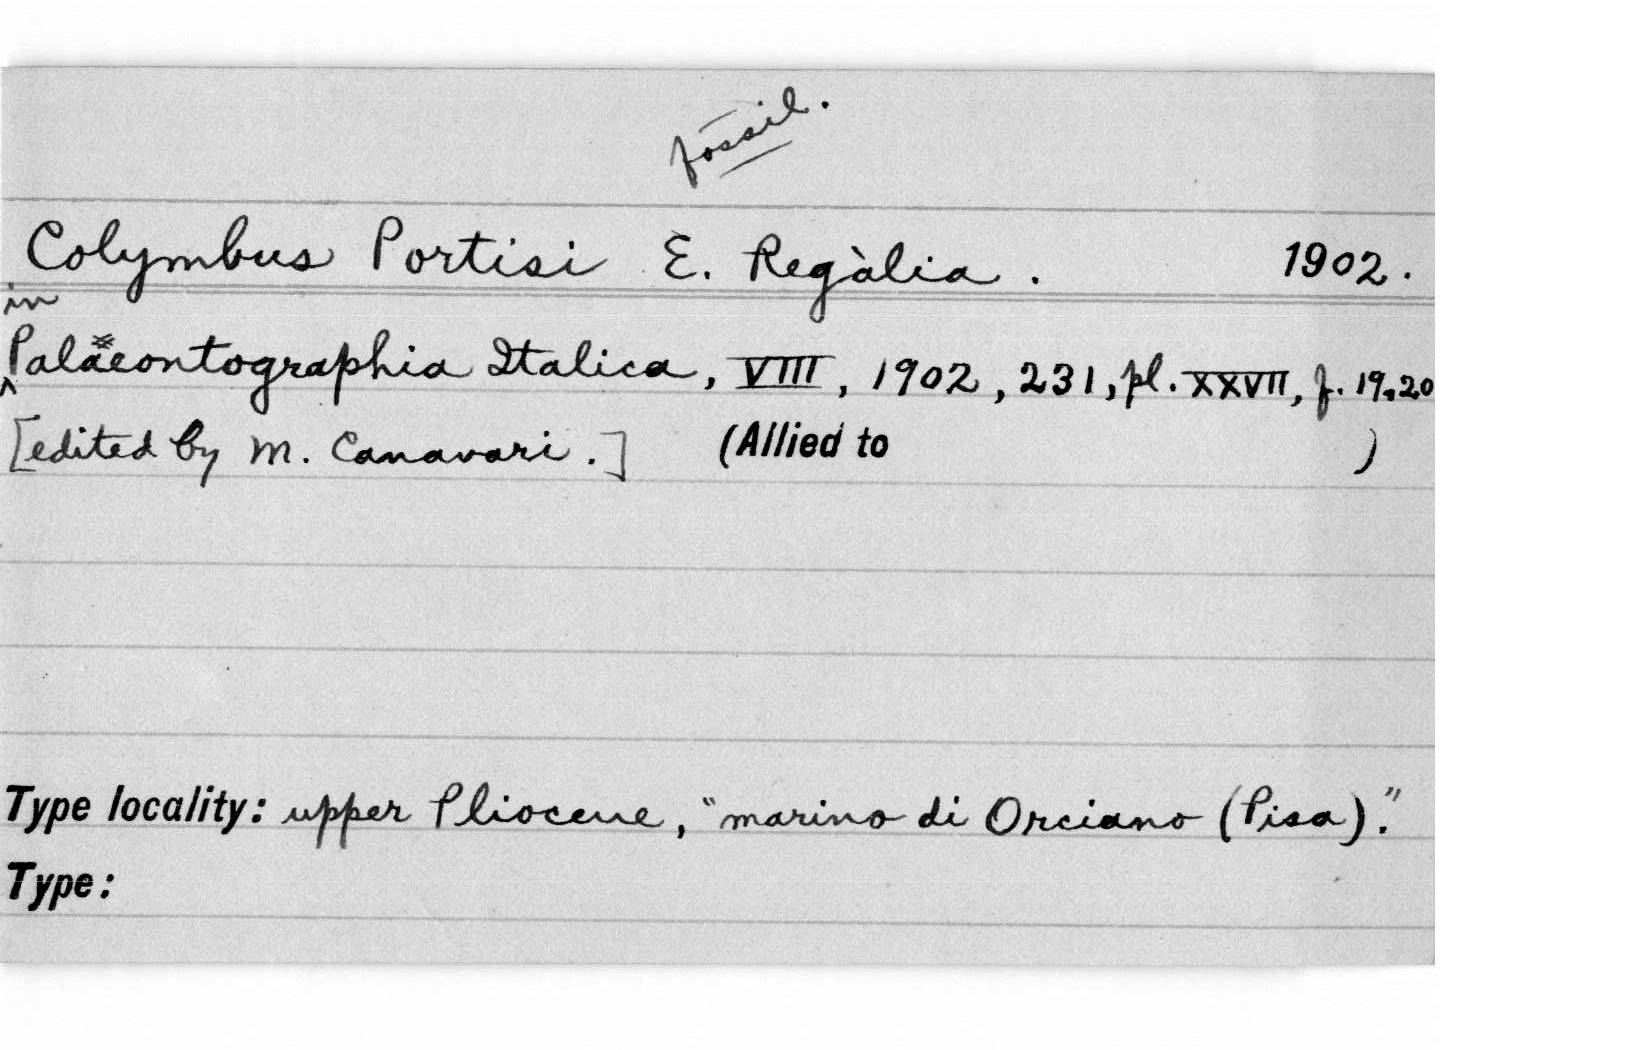 fossil.
Colymbus Portisi E. Regàlia. 1902.
in
Palæontographia Italica, VIII, 1902, 231, pl. XXVII, f. 19, 20
[edited by M. Canavari.] (Allied to )
Type locality: upper Pliocene, "marino di Orciano (Pisa)."
Type: